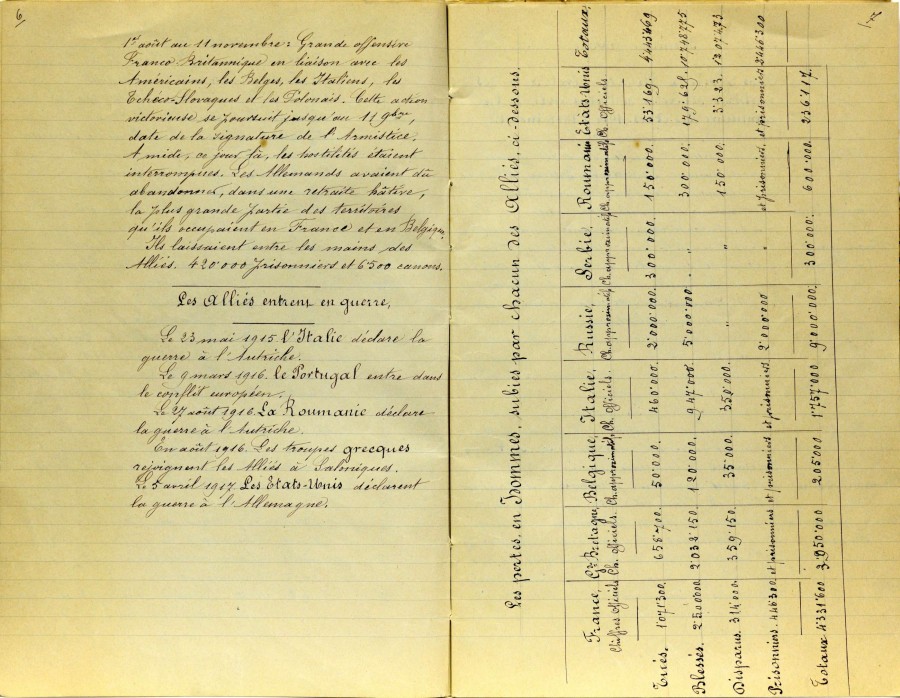 6
1er août au 11 novembre: Grande offensive
Franco Britannique en liaison avec les
Américains, les Belges, les Italiens, les
Tchéco-Slovaques et les Polonais. Cette action
victorieuse se poursuit jusqu'au 11 9bre,
date de la signature de l'Armistice.
A midi, ce jour là, les hostilités étaient
interrompues. Les Allemands avaient dû
abandonner, dans une retraite hâtive,
la plus grande partie des territoires
qu'ils occupaient en France et en Belgique.
Ils laissaient entre les mains des
Alliés. 420.000 prisonniers et 6500 canons.
Les Alliés entrent en guerre.
Le 23 mai 1915 l'Italie déclare la
guerre à l'Autriche.
Le 9 mars 1916. le Portugal entre dans
le conflit européen.
Le 27 août 1916. La Roumanie déclare
la guerre à l'Autriche.
En août 1916. Les troupes grecques
rejoignent les Alliés à Saloniques.
Le 5 avril 1917 Les Etats-Unis déclarent
la guerre à l'Allemagne.
7
Les pertes, en Hommes, subies par chacun des Alliés, ci-dessous.
France, Gr Bretagne, Belgique, Italie, Russie, Serbie, Roumanie Etats-Unis Totaux,
Chiffres officiels Ch. officiels. Ch. approximatifs Ch. officiels. Ch. approximatifs Ch. approximatifs Ch. approximatifs Ch. officiels.
Tués, 1.071.300. 658.700. 50.000. 460.000. 2.000.000. 300.000. 150.000. 53.169.
Blessés. 2.500.000. 2.032.150. 120.000. 947.000. 5.000.000. " 300.000. 179.625. 10.748.775
Disparus. 314.000. 359.150. 35.000. 350.000. " " 150.000. 3.323. 1.207.473
Prisonniers. 446.300. et prisonniers et prisonniers et prisonniers. 2.000.000 " et prisonniers. et prisonniers 2.446.300
Totaux 4.331.600 3.050.000 205.000 1.757.000 9.000.000. 300.000. 600.000. 236.117.